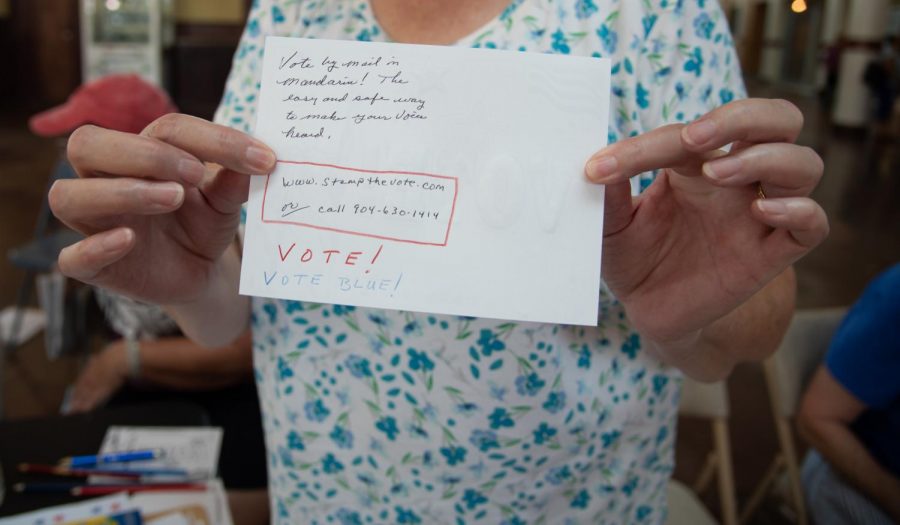 Vote by mail in
Mandarin! The
easy and safe way
to make your voice
heard.
www.stampthevote.com
or call 904-630-1414
VOTE!
VOTE BLUE!